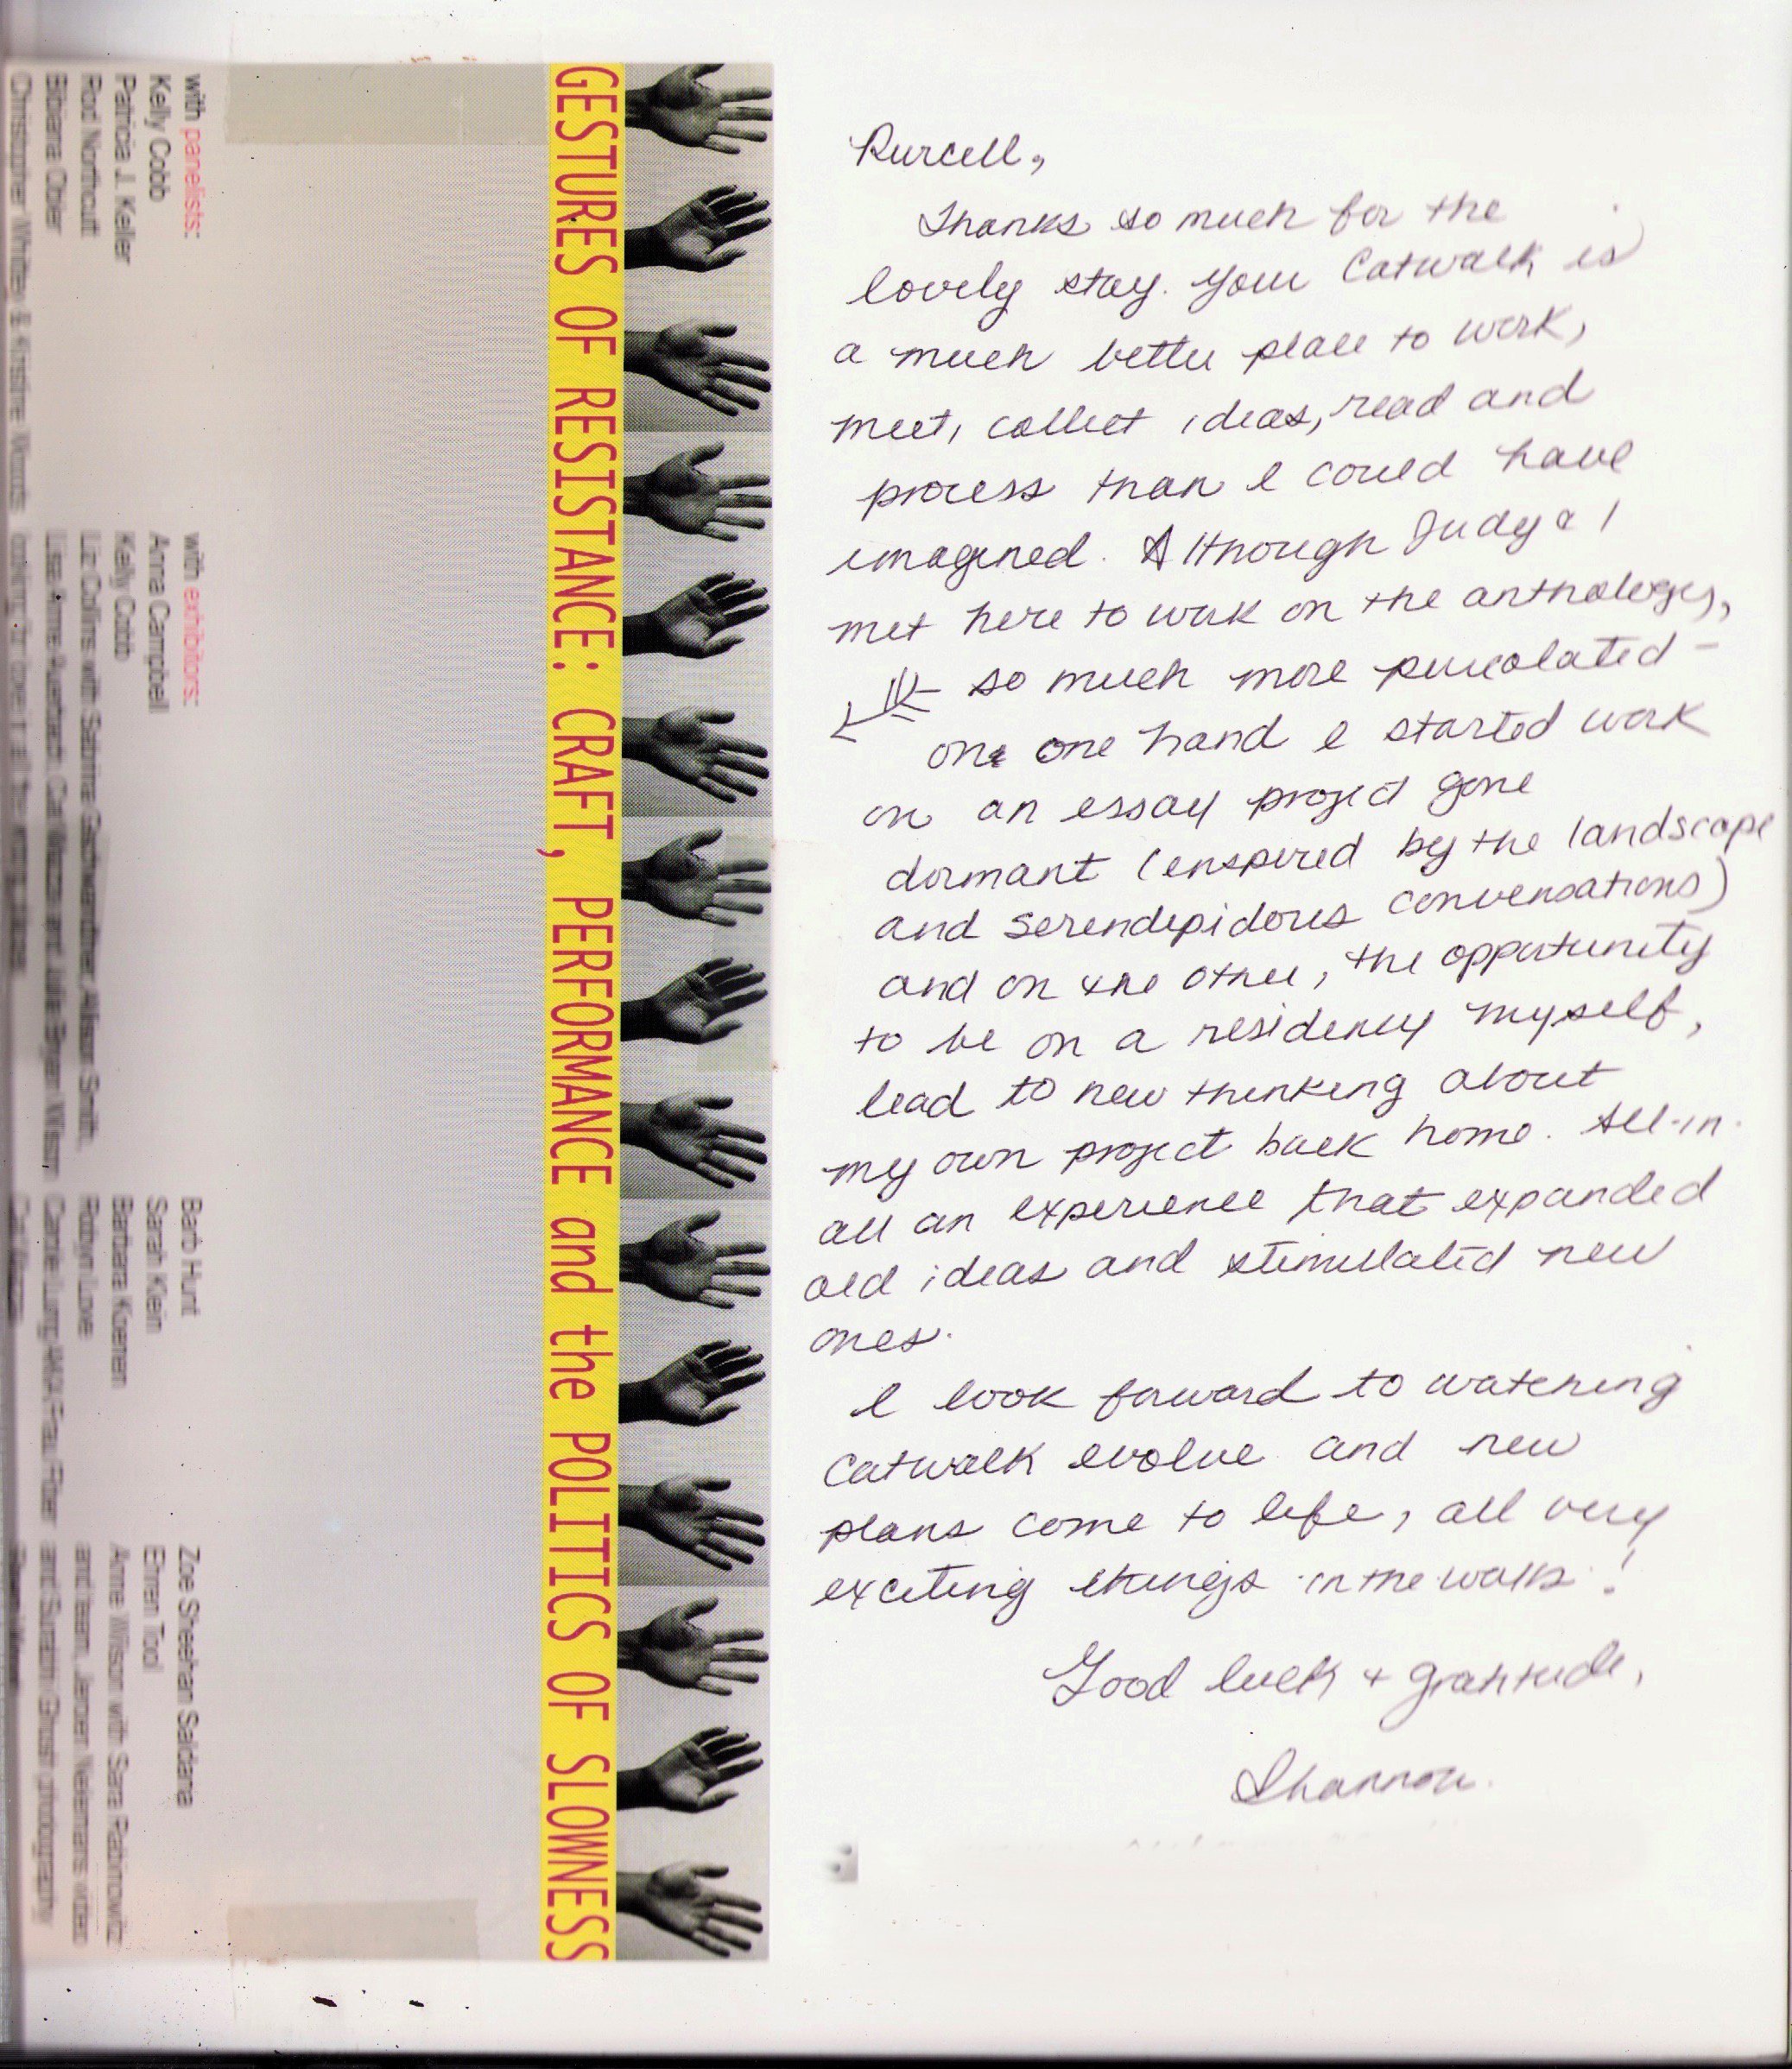 GESTURES OF RESISTANCE: CRAFT, PERFORMANCE and the POLITICS OF SLOWNESS
with panelists:
Kelly Cobb
Patricia J. Keller
Rod Northcutt
Bibiana Obler
with exhibitors:
Anna Campbell
Kelly Cobb
Liz Collins with Sabrina Gschwandtner, Allison Smith,
Barb Hunt
Sarah Klein
Barbara Koenen
Robyn Love
Zoe Sheehan Saldana
Ehren Tool
Anne Wilson with Sara Rabinowitz
Purcell,
Thanks so much for the
lovely stay. Your Catwalk is
a much better place to work,
meet, collect ideas, read and
process than I could have
imagined. Although Judy & I
met here to work on the anthology,
so much more percolated -
on one hand I started work
on an essay project gone
dormant (inspired by the landscape
and serendipidous conversations)
and on the other, the opportunity
to be on a residency myself,
lead to new thinking about
my own project back home. All-in-
all an experience that expanded
old ideas and stimulated new
ones.
I look forward to watching
Catwalk evolve and new
plans come to life, all very
exciting things in the works!
Good luck + gratitude,
Shannon.